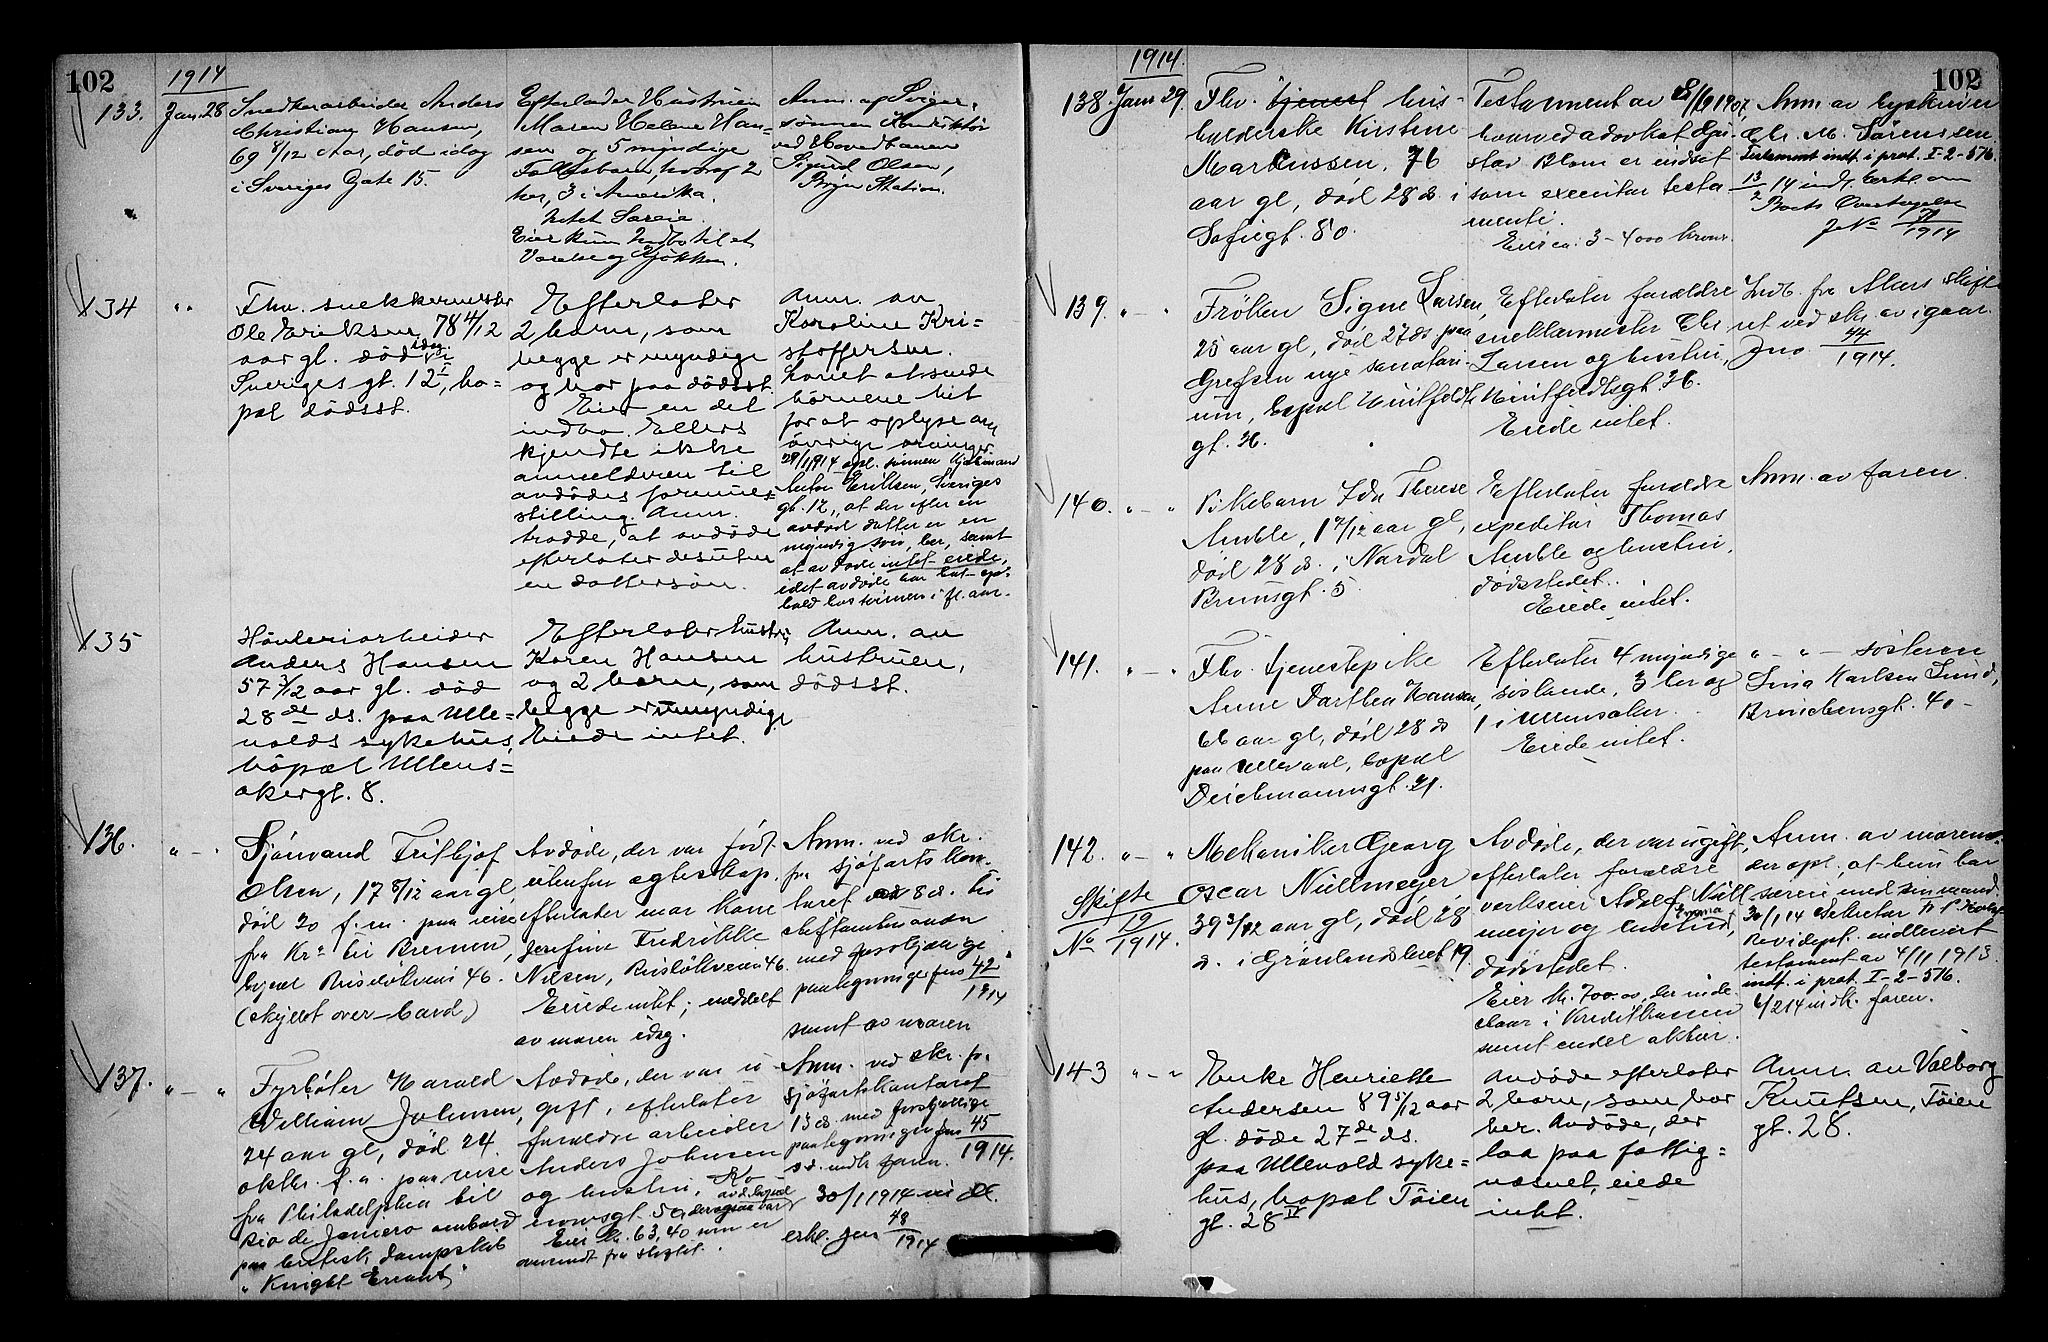 102
1914
133. Jan 28
Snedkerarbeider Anders
Christian Hansen,
69 8/12 Aar, død idag
i Sveriges Gate 15.
Efterlader Hustruen
Maren Helene Han-
sen og 5 myndige
Fællesbarn, hvoraf 2
her, 3 i Amerika.
Intet Særeie.
Eier kun Indbo til et
Værelse og Kjøkken.
Anm. af Sviger-
sønnen Konduktør
ved Hovedbanen
Sigurd Olsen,
Bryn Station.
134 " "
Fhv. snekkermester
Ole Eriksen, 78 4/12
aar gl. død idag i
Sveriges gt. 12 I, bo-
pæl dødsst.
Efterlater
2 barn, som
begge er myndige
og bor paa dødsst.
Eier en del
indbo. Ellers
kjendte ikke
anmelderen til
avdødes formues-
stilling. Anm.
trodde, at avdøde
efterlater desuten
en dattersøn.
Anm. av
Karoline Kri-
stoffersen.
Lovet at sende
børnene hit
for at oplyse om
øvrige arvinger.
29/1 1914 opl. sønnen
Anton Eriksen, Sveriges
gt. 12, at der efter en
avdød datter er en
myndig søn, her, samt
at avdøde intet eiede,
idet avdøde har hat op-
hold hos sønnen i fl. aar.
135
Høvleriarbeider
Anders Hansen
57 3/12 aar gl. død
28de ds. paa Ulle-
volds sykehus,
bopæl Ullens-
akergt. 8.
Efterlater hustru
Karen Hansen
og 2 barn, som
begge er umyndige.
Eiede intet.
Anm. av
hustruen,
dødsst.
136. " - "
Sjømand Frithjof
Olsen, 17 8/12 aar gl,
død 20 f.m. paa reise
fra Kra til Bremen,
bopæl Ruseløkveien 46.
(skyllet over-bord)
Avdøde, der var født
utenfor egteskap.
efterlater mor Kone
Josefine Fredrikke
Nilsen, Ruseløkveien 46.
Eiede intet; meddelt
av moren idag.
Anm. ved skr.
fra sjøfartskon-
toret av 8 ds. til
skiftesamlingen
med forskjellige
paategninger jno 42/1914
samt av moren
137. " - "
Fyrbøter Harald
William Johnsen,
24 aar gl, død 24.
oktbr. f.a. paa reise
fra Philadelphia til
Rio de Janiero ombord
paa britisk dampskib
"Knight Errant"
Avdøde, der var u-
gift, efterlater
forældre arbeider
Anders Johnsen
og hustru,
Eier kr. 63,40 som er
oversendt fra skibet.
Anm. ved skr. fra
sjøfartskontoret
13 ds. med forskjellige
paategninger jno 45/1914.
s.d. indk. faren.
30/1 1914 ind.
erkl. jno 48/1914
102
1914.
138. Jan 29.
Fhv. tjenest hus-
holderske Kirstine
Markussen, 76
aar gl, død 28 ds. i
Sofiegt. 80.
Testament av 8/6 1907,
hvorved advokat Gu-
stav Blom er indsat
som executor testa
menti.
Eier ca. 3-4000 kroner.
Anm. av byskriver
Chr. M. Sørenssen
Testament indf. i prot. I-2-576.
13/2 14 indl. Erkl. om
Boets Overtagelse
139. " - "
Frøken Signe Larsen,
25 aar gl, død 27 ds paa
Grefsen nye sanatori-
um, bopæl Huitfeldts
gt. 36.
Efterlater forældre
snekkermester Chr
Larsen og hustru,
Huitfeldtsgt. 36.
Eiede intet.
Indb. fra Akers skift
ret ved skr. av igaar.
Jno. 44/1914.
140. " - "
Pikebarn Ida Therese
Amble, 1 7/12 aar gl,
død 28 ds. i Nordal
Brunsgt. 5
Efterlater forældre
expeditør Thomas
Amble og hustru,
dødsstedet.
Eiede intet.
Anm. av faren.
141. " - "
Fhv. tjenestepike
Anne Dorthea Hansen,
66 aar gl, død 28 ds
paa Ullevaal, bopæl
Deichmannsgt. 21.
Efterlater 4 myndige
søskende, 3 her og
1 i Ullensaker.
Eiede intet.
" - " - søsteren
Lina Karlsen Lund,
Brinchensgt. 40-
142. " - "
Skifte
No 19/1914.
Mekaniker Georg
Oscar Nüllmeyer
39 3/12 aar gl, død 28
ds. i Grønlandsleret 19.
Avdøde, der var ugift,
efterlater forældre
verkseier Adolf Nüll
meyer og hustru Emma,
dødsstedet.
Eier kr. 700.00, der inde
staar i Kreditkassen
samt endel aktier.
Anm. av moren
der opl., at hun har
særeie med sin mand.
30/1 14 Sekretær
Revidept. indlevert
testament av 4/11 1913.
indf. i prot. I-2-576.
6/2 14 indk. faren.
143 " - "
Enke Henriette
Andersen 89 5/12 aar
gl. døde 27de ds.
paa Ullevold syke-
hus, bopæl Tøien
gt. 28 IV
Avdøde efterlater
2 barn, som bor
her. Avdøde, der
laa paa fattig-
væsnet, eiede
intet.
Anm. av Valborg
Knutsen, Tøien
gt. 28.